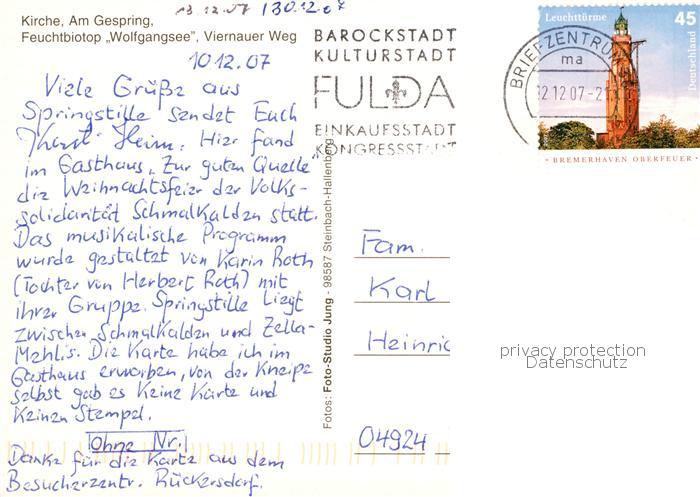 13.12.07 / 30.12.07
Kirche, Am Gespring,
Feuchtbiotop „Wolfgangsee", Viernauer Weg
10.12.07
Viele Grüße aus
Springstille sendet Euch
Karl-Heinz. Hier fand
im Gasthaus „Zur guten Quelle"
die Weihnachtsfeier der Volks-
solidarität Schmalkalden statt.
Das musikalische Programm
wurde gestaltet von Karin Roth
(Tochter von Herbert Roth) mit
ihrer Gruppe. Springstille liegt
zwischen Schmalkalden und Zella-
Mehlis. Die Karte habe ich im
Gasthaus erworben, von der Kneipe
selbst gab es keine Karte und
keinen Stempel.
Ohne Nr.
Danke für die Karte aus dem
Besucherzentr. Rückersdorf.
Fotos: Foto-Studio Jung - 98587 Steinbach-Hallenberg
BAROCKSTADT
KULTURSTADT
FULDA
EINKAUFSSTADT
KONGRESSSTADT
BRIEFZENTRUM
ma
12.12.07-21
Leuchttürme
45
Deutschland
BREMERHAVEN OBERFEUER
Fam.
Karl
Heinric
04924
privacy protection
Datenschutz